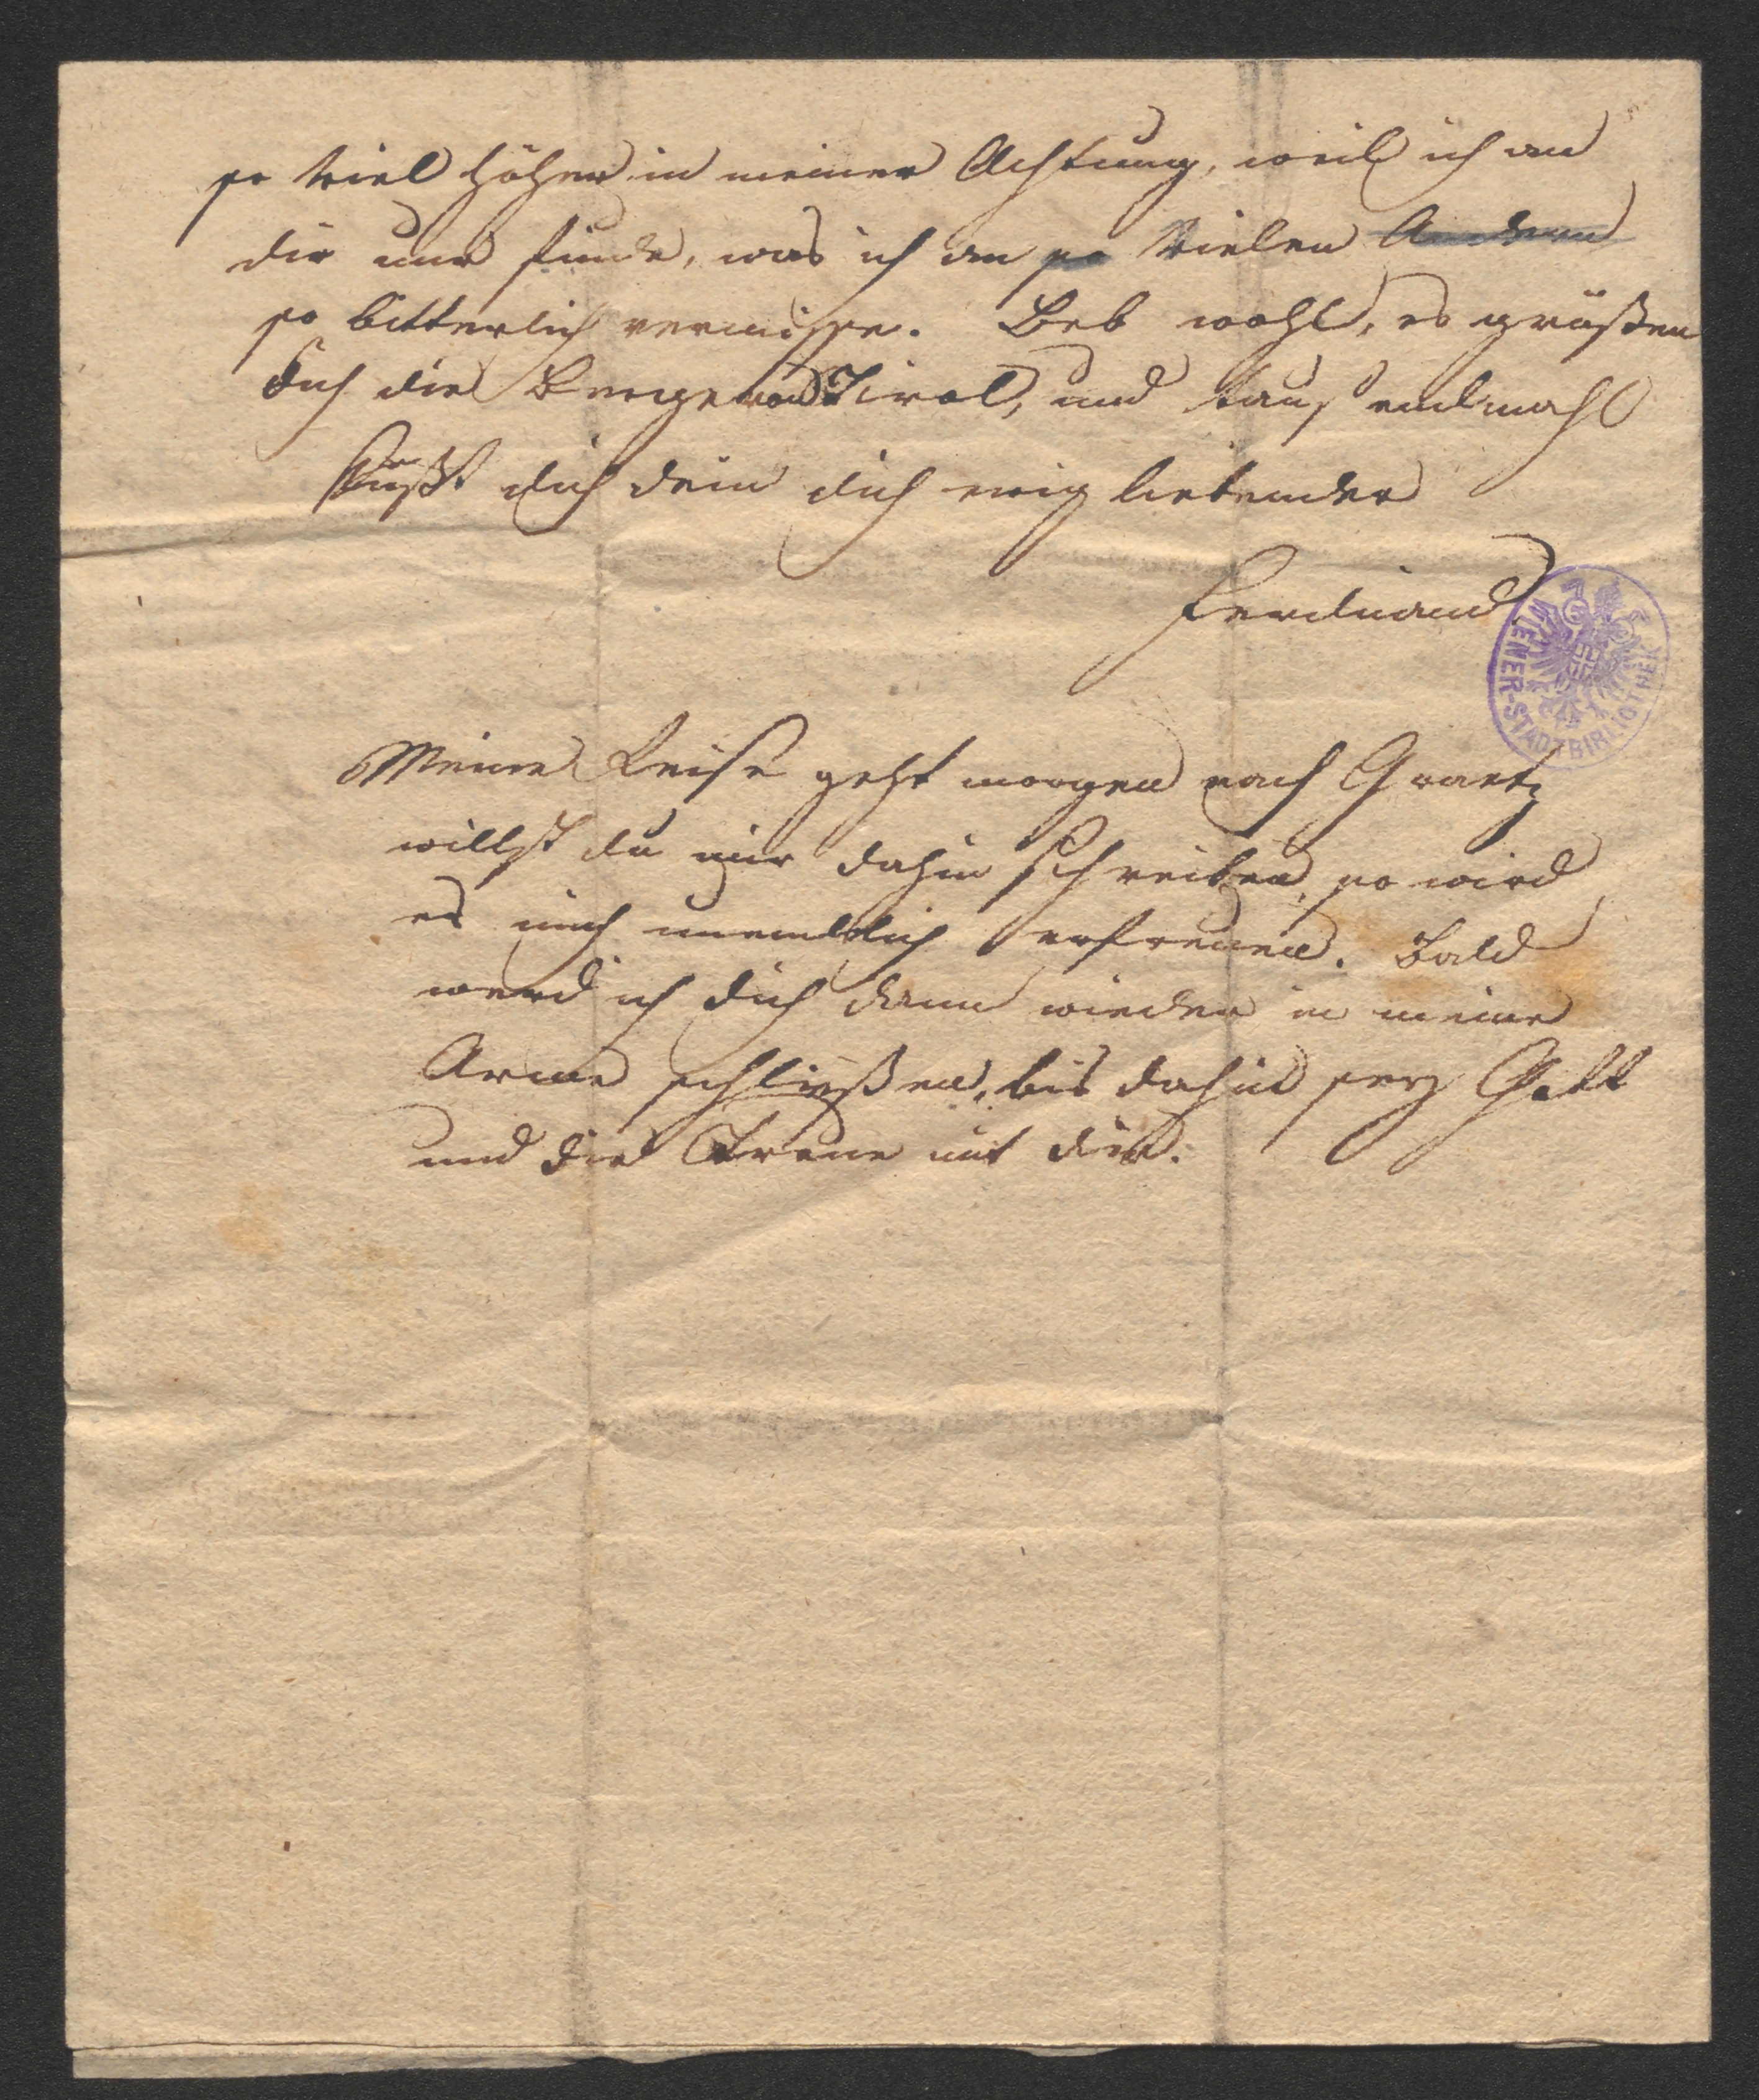 so viel höher in meiner Achtung, weil ich an
dir nur finde, was ich an so Vielen Andern
so bitterlich vermisse. Leb wohl, es grüßen
dich die Berge von Tirol, und tausendmahl
küßt dich dein dich ewig liebender
Ferdinand
WIENER-STADTBIBLIOTHEK
Meine Reise geht morgen nach Graetz
willst du mir dahin schreiben, so wird
es mich unendlich erfreuen. Bald
werd ich dich dann wieder in meine
Arme schließen, bis dahin sey Gott
und die Treue mit dir.